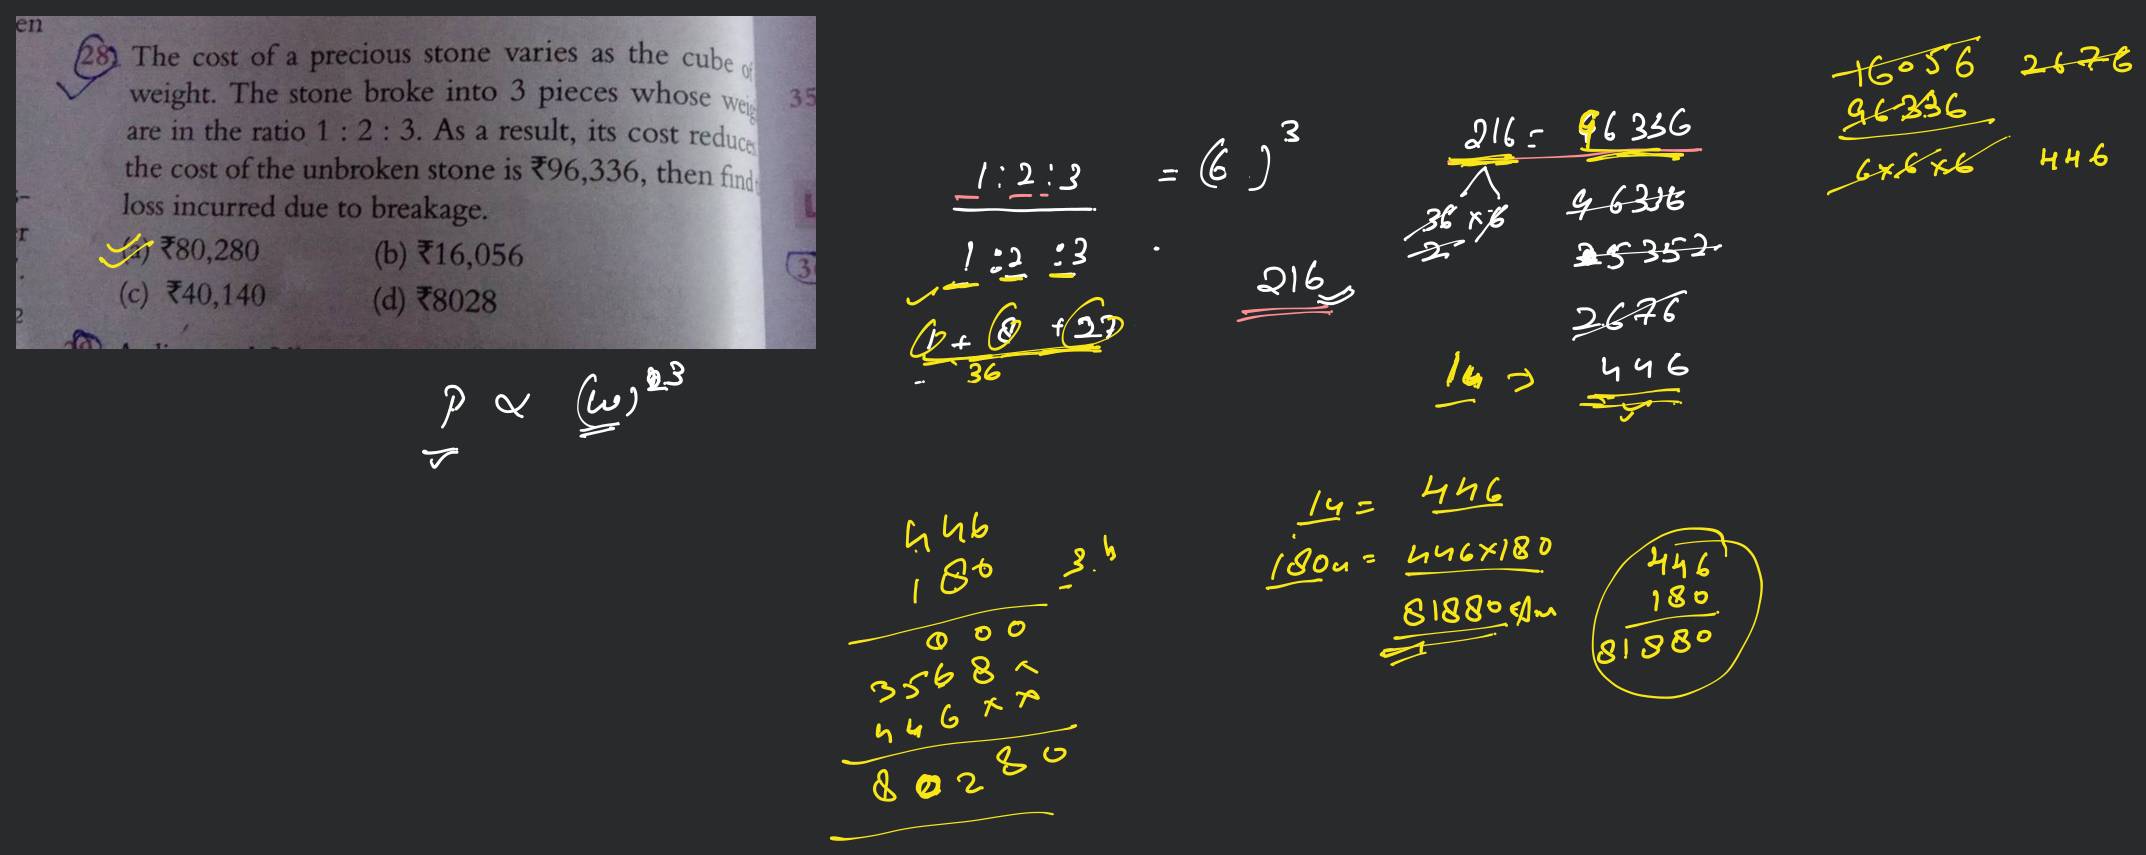 en
28) The cost of a precious stone varies as the cube of
weight. The stone broke into 3 pieces whose
are in the ratio 1 : 2 : 3. As a result, its cost reduces
the cost of the unbroken stone is ₹96,336, then find
loss incurred due to breakage.
(a) ₹80,280 (b) ₹16,056
(c) ₹40,140 (d) ₹8028
35
P ∝ (w)3
1:2:3 = (6)3
1:2:3
1 + 8 + 27
36
216
216 = 96336
36 × 6
96336
2676
1u → 446
16056 2676
96336
6×6×6 446
446
180
000
3568×
446××
80280
1u = 446
180u = 446×180
81880
446
180
81880